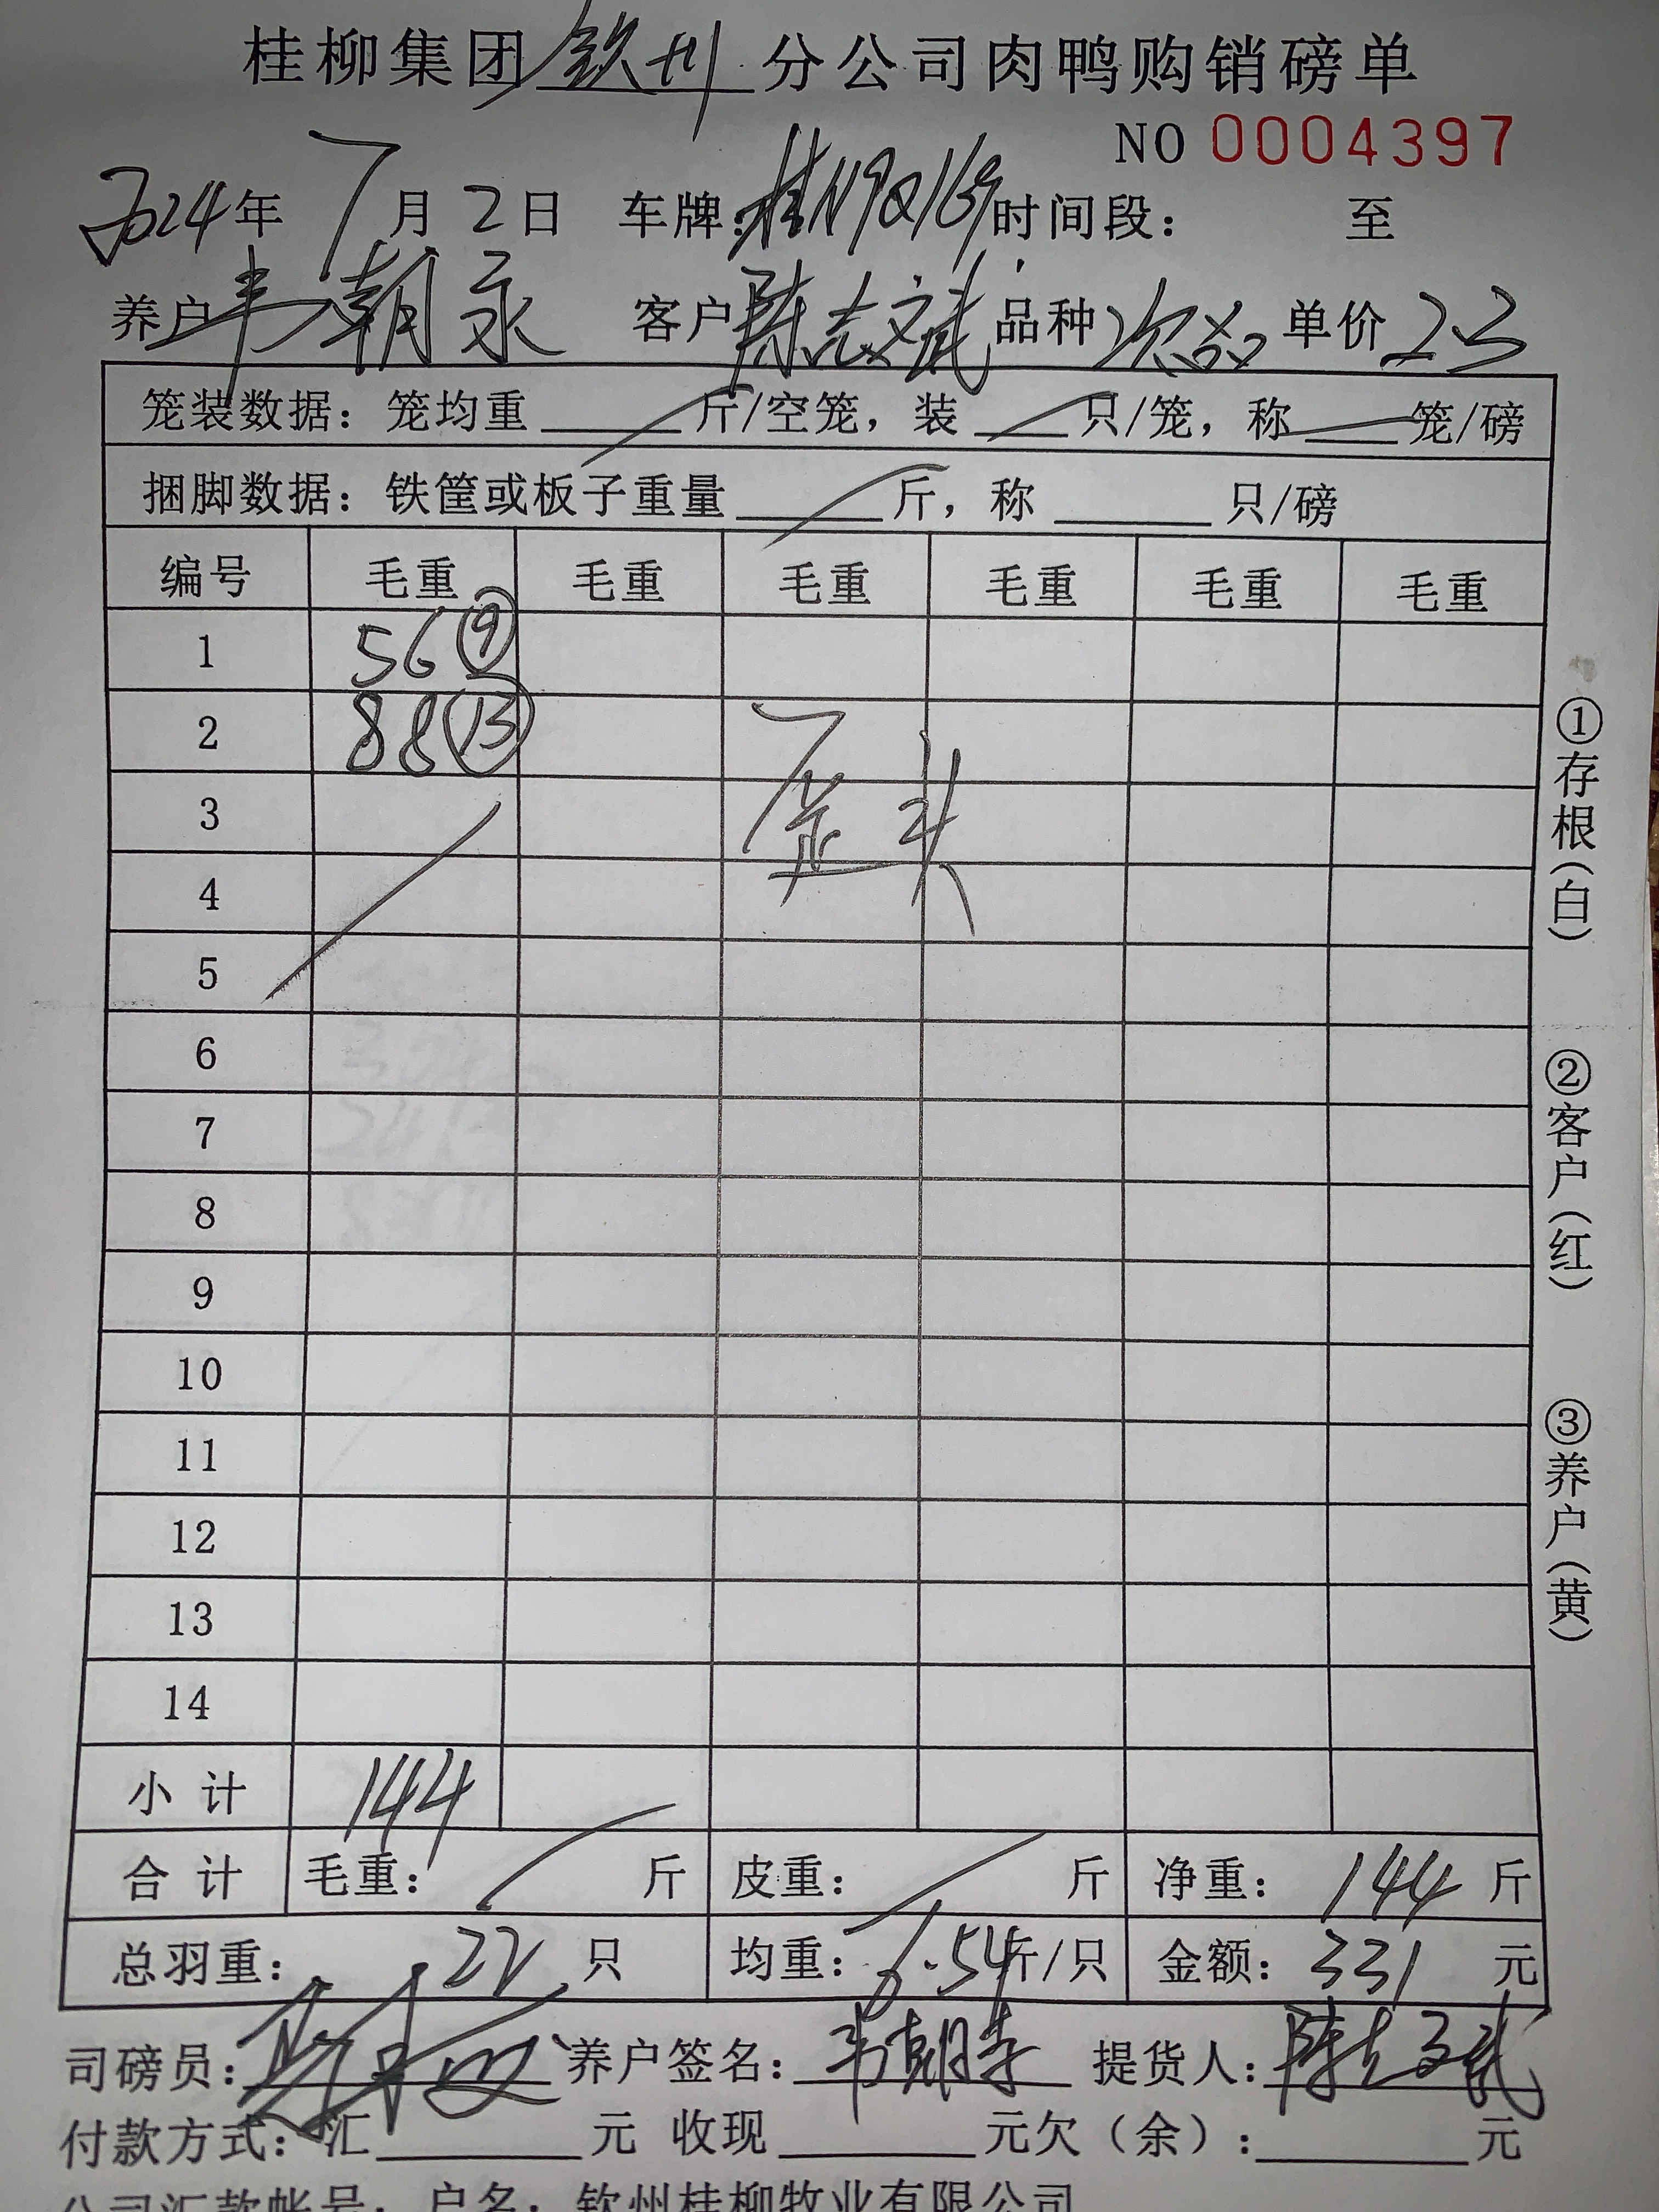 桂柳集团钦州分公司肉鸭购销磅单
NO 0004397
2024年7月2日 车牌:桂N9Q169时间段: 至
养户韦朝永 客户陈志斌品种次品单价2.3
笼装数据:笼均重 斤/空笼,装 只/笼,称 笼/磅
捆脚数据:铁筐或板子重量 斤,称 只/磅
编号 毛重 毛重 毛重 毛重 毛重 毛重
1 56 ⑨
2 88 ⑬
3 歪头
4
5
6
7
8
9
10
11
12
13
14
小计 144
合计 毛重: 斤 皮重: 斤 净重: 144 斤
总羽重: 22 只 均重: 6.54斤/只 金额: 331 元
司磅员: 养户签名: 韦朝 提货人: 陈志斌
付款方式: 汇 元 收现 元欠(余): 元
公司汇款帐号: 户名: 钦州桂柳牧业有限公司
①存根(白)
②客户(红)
③养户(黄)